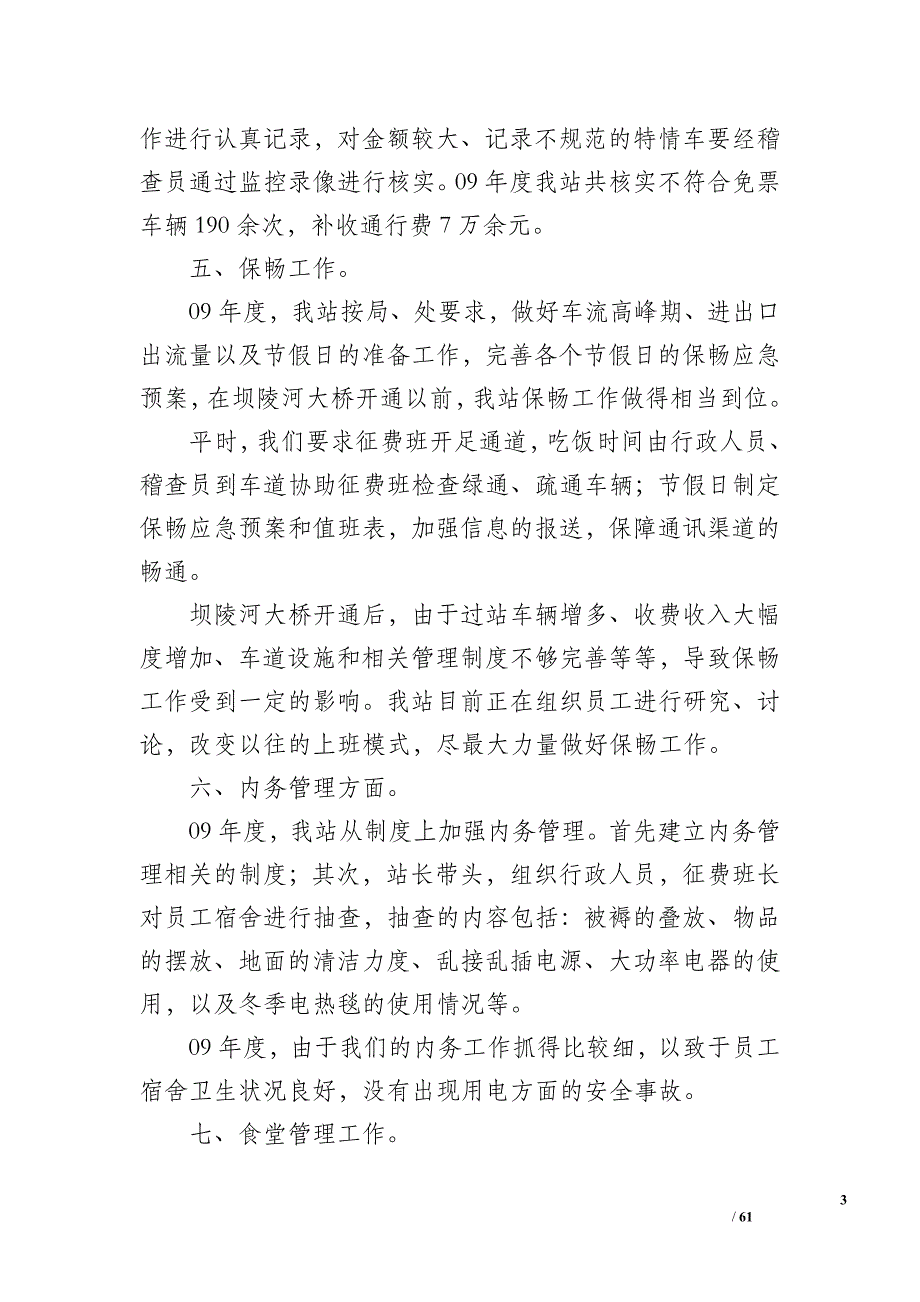 作进行认真记录，对金额较大、记录不规范的特情车要经稽
查员通过监控录像进行核实。09 年度我站共核实不符合免票
车辆 190 余次，补收通行费 7 万余元。
五、保畅工作。
09 年度，我站按局、处要求，做好车流高峰期、进出口
出流量以及节假日的准备工作，完善各个节假日的保畅应急
预案，在坝陵河大桥开通以前，我站保畅工作做得相当到位。
平时，我们要求征费班开足通道，吃饭时间由行政人员、
稽查员到车道协助征费班检查绿通、疏通车辆；节假日制定
保畅应急预案和值班表，加强信息的报送，保障通讯渠道的
畅通。
坝陵河大桥开通后，由于过站车辆增多、收费收入大幅
度增加、车道设施和相关管理制度不够完善等等，导致保畅
工作受到一定的影响。我站目前正在组织员工进行研究、讨
论，改变以往的上班模式，尽最大力量做好保畅工作。
六、内务管理方面。
09 年度，我站从制度上加强内务管理。首先建立内务管
理相关的制度；其次，站长带头，组织行政人员，征费班长
对员工宿舍进行抽查，抽查的内容包括：被褥的叠放、物品
的摆放、地面的清洁力度、乱接乱插电源、大功率电器的使
用，以及冬季电热毯的使用情况等。
09 年度，由于我们的内务工作抓得比较细，以致于员工
宿舍卫生状况良好，没有出现用电方面的安全事故。
七、食堂管理工作。
3
/ 61